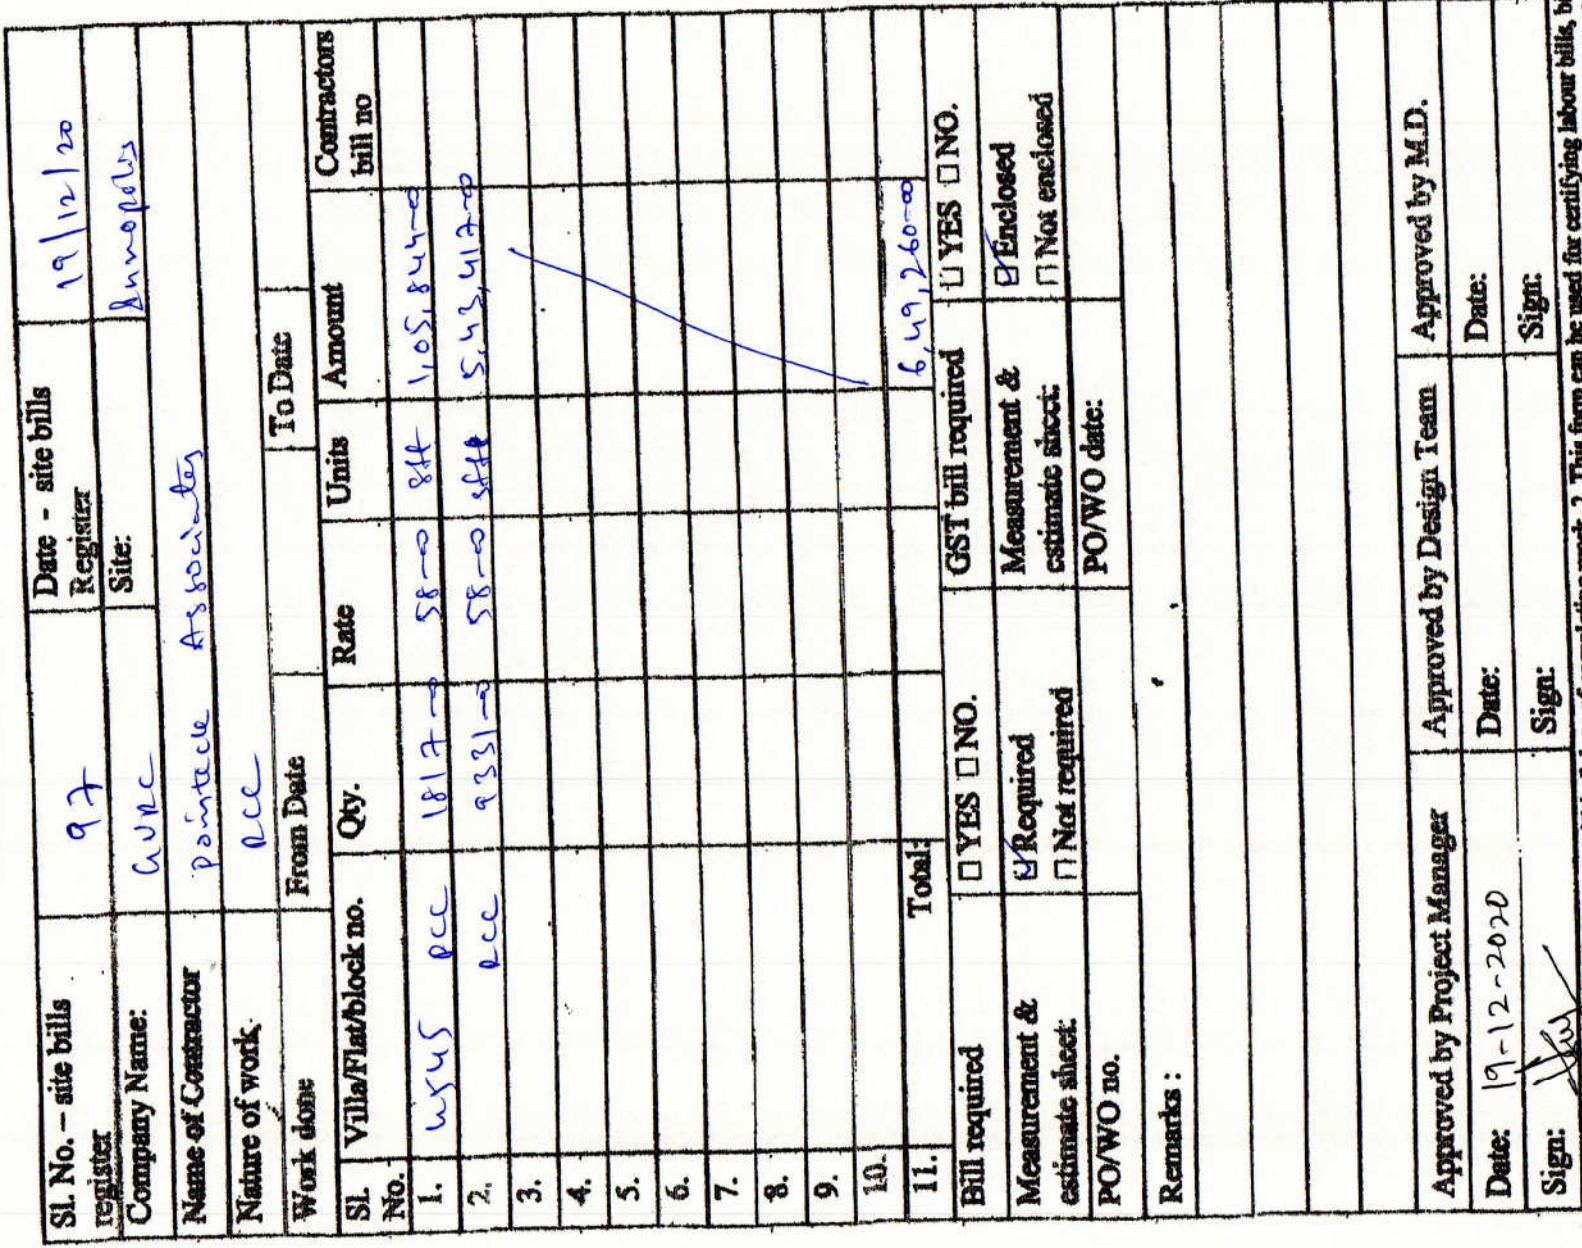 Sl. No. – site bills register 97 Date - site bills Register 19/12/20
Company Name: GVRC Site: Annopolis
Name of Contractor pointack Associates
Nature of work RCC
Work done From Date To Date
Sl. No. Villa/Flat/block no. Qty. Rate Units Amount Contractors bill no
1. PCC 1817-00 58-00 sft 1,05,844-00
2. RCC 9331-00 58-00 sft 5,43,417-00
3.
4.
5.
6.
7.
8.
9.
10.
11. Total: 6,49,260-00
Bill required □ YES □ NO. GST bill required □ YES □ NO.
Measurement & estimate sheet: ☑ Required □ Not required Measurement & estimate sheet: ☑ Enclosed □ Not enclosed
PO/WO no. PO/WO date:
Remarks :
Approved by Project Manager Approved by Design Team Approved by M.D.
Date: 19-12-2020 Date: Date:
Sign: Sign: Sign:
2. This from can be used for certifying labour bills,